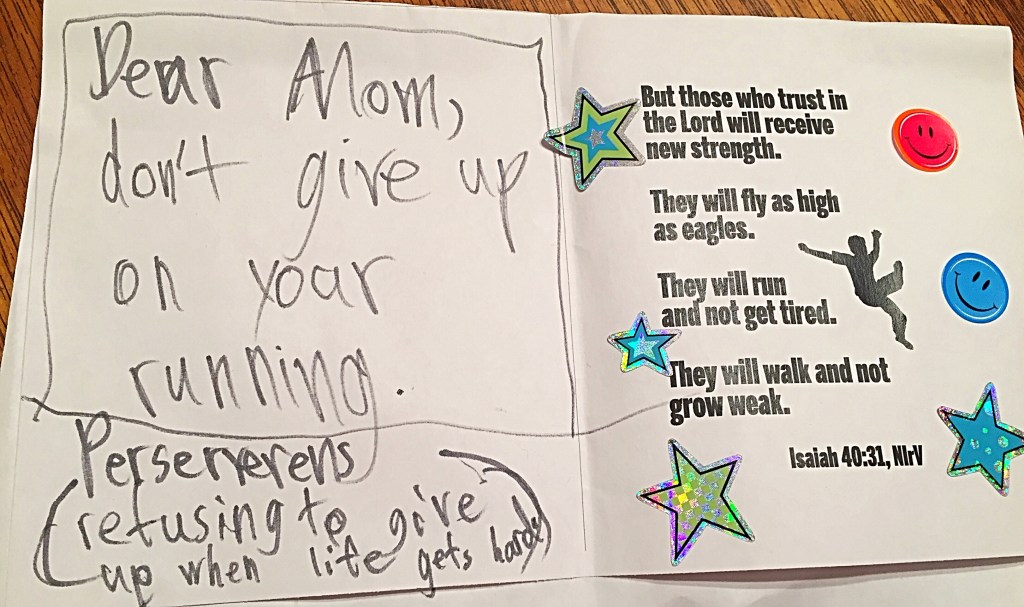 Dear Mom,
don't give up
on yoar
running.
Perserverens
refusing to give
up when life gets hard
But those who trust in
the Lord will receive
new strength.
They will fly as high
as eagles.
They will run
and not get tired.
They will walk and not
grow weak.
Isaiah 40:31, NIrV